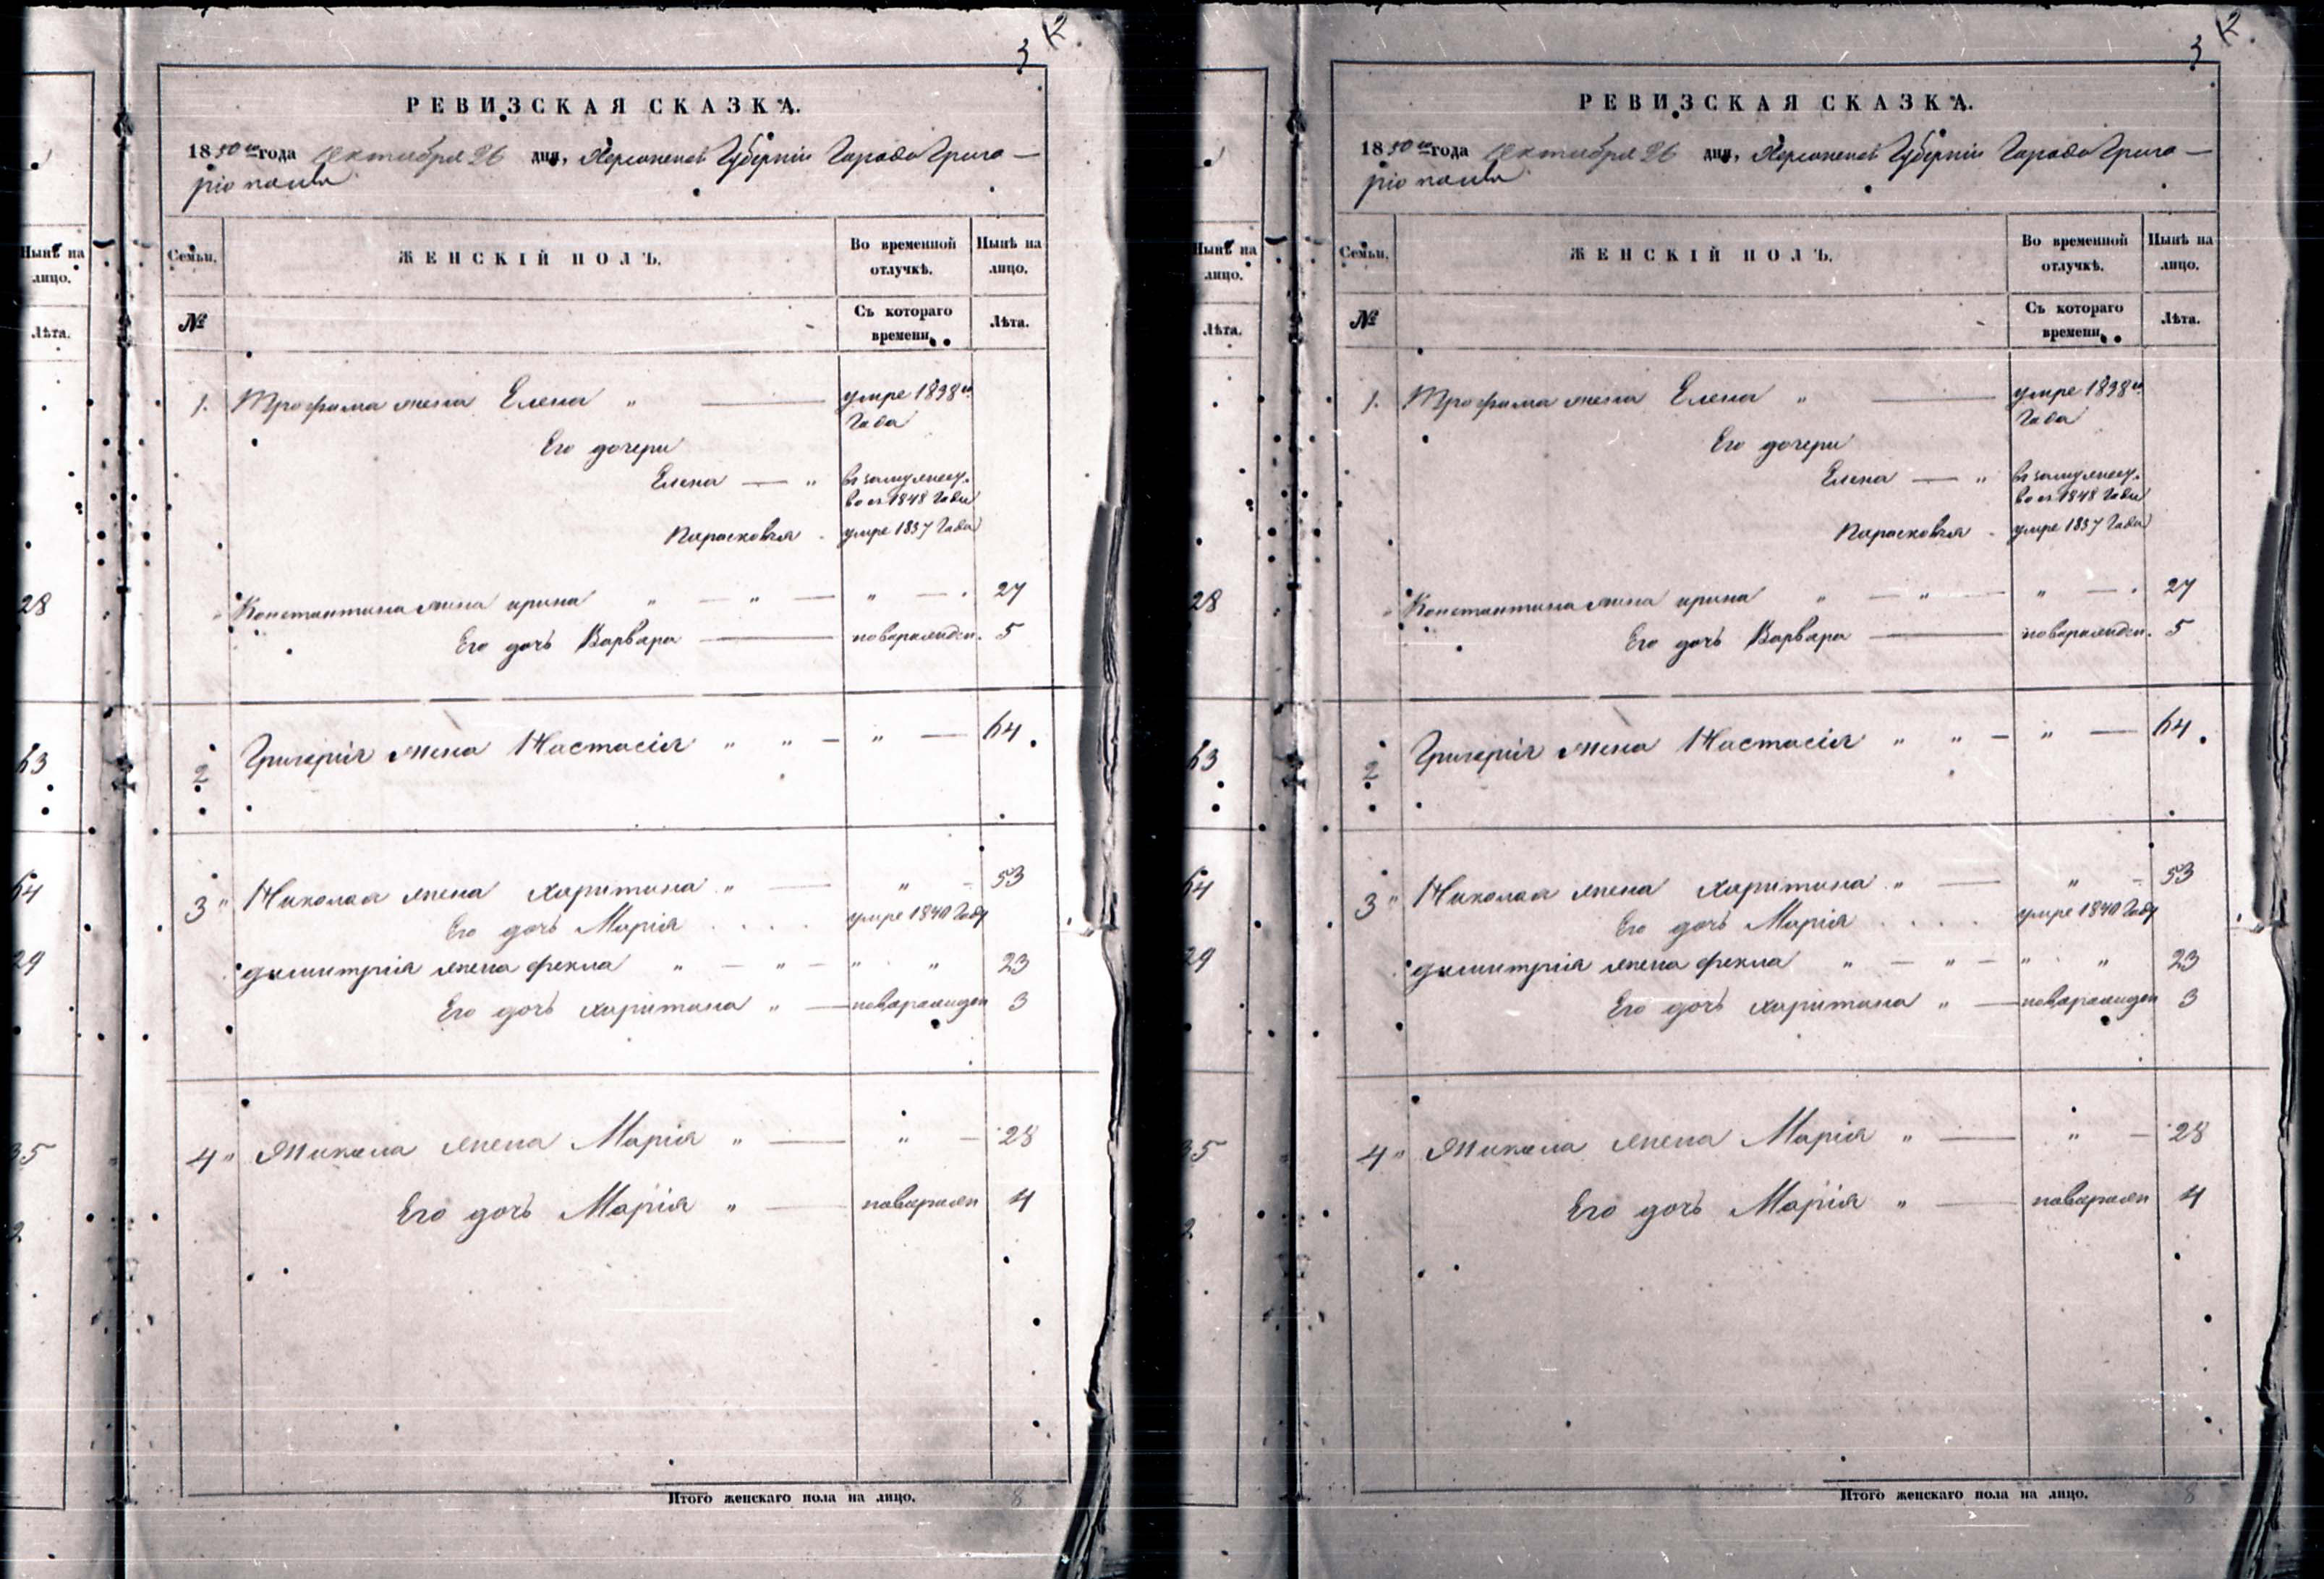 2
3
РЕВИЗСКАЯ СКАЗКА.
1850 го года октября 26 дня, Херсонской Губерніи Города Григо-
ріополя
Нынѣ на лицо.
Лѣта.
28
63
64
29
35
2
Семьи.
ЖЕНСКІЙ ПОЛЪ.
Во временной отлучкѣ.
Нынѣ на лицо.
№
Съ котораго времени.
Лѣта.
1. Трофима жена Елена " — умре 1838 го
Года
Его дочери
Елена — " въ замужест.
во съ 1848 Года
Парасковья . умре 1837 Года
Константина жена ирина " — " — " — . 27
Его дочь Варвара — новорожден. 5
2 Григорія жена Настасія " " — " — 64.
3 " Николая жена харитина " — " - 53
Его дочь Марія . . . . умре 1840 Году
димитрія жена фекла " — " — " " 23
Его дочь харитина " — новорожден 3
4 " жена Марія " — " — 28
Его дочь Марія " — новорожен 4
Итого женскаго пола на лицо. 8
2
3
РЕВИЗСКАЯ СКАЗКА.
1850 го года октября 26 дня, Херсонской Губерніи Города Григо-
ріополя
Нынѣ на лицо.
Лѣта.
28
63
64
29
35
2
Семьи.
ЖЕНСКІЙ ПОЛЪ.
Во временной отлучкѣ.
Нынѣ на лицо.
№
Съ котораго времени.
Лѣта.
1. Трофима жена Елена " — умре 1838 го
Года
Его дочери
Елена — " въ замужест.
во съ 1848 Года
Парасковья . умре 1837 Года
Константина жена ирина " — " — " — . 27
Его дочь Варвара — новорожден. 5
2 Григорія жена Настасія " " — " — 64.
3 " Николая жена харитина " — " - 53
Его дочь Марія . . . . умре 1840 Году
димитрія жена фекла " — " — " " 23
Его дочь харитина " — новорожден 3
4 " жена Марія " — " — 28
Его дочь Марія " — новорожен 4
Итого женскаго пола на лицо. 8